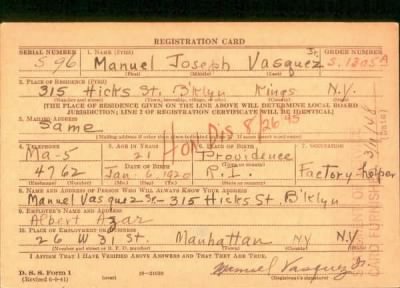 REGISTRATION CARD
SERIAL NUMBER 1. NAME (Print) ORDER NUMBER
S 96 Manuel Joseph Vasquez Jr. S. 1305A
(First) (Middle) (Last)
2. PLACE OF RESIDENCE (Print)
315 Hicks St. B'klyn Kings N.Y.
(Number and street) (Town, township, village, or city) (County) (State)
[THE PLACE OF RESIDENCE GIVEN ON THE LINE ABOVE WILL DETERMINE LOCAL BOARD
JURISDICTION; LINE 2 OF REGISTRATION CERTIFICATE WILL BE IDENTICAL]
3. MAILING ADDRESS
Same
4. TELEPHONE 5. AGE IN YEARS 6. PLACE OF BIRTH 7. OCCUPATION
Ma-5 21 Providence
DATE OF BIRTH
4762 Jan 6, 1920 R.I. Factory helper
(Exchange) (Number) (Mo.) (Day) (Yr.) (State or country)
HON DIS 8/26 45
8. NAME AND ADDRESS OF PERSON WHO WILL ALWAYS KNOW YOUR ADDRESS
Manuel Vasquez Sr - 315 Hicks St. B'klyn
9. EMPLOYER'S NAME AND ADDRESS
Albert Azar
10. PLACE OF EMPLOYMENT OR BUSINESS
26 W 31 St Manhattan NY N.Y.
(Number and street or R. F. D. number) (Town) (County) (State)
I AFFIRM THAT I HAVE VERIFIED ABOVE ANSWERS AND THAT THEY ARE TRUE.
D. S. S. Form 1
Manuel Vasquez Jr.
(Registrant's signature)